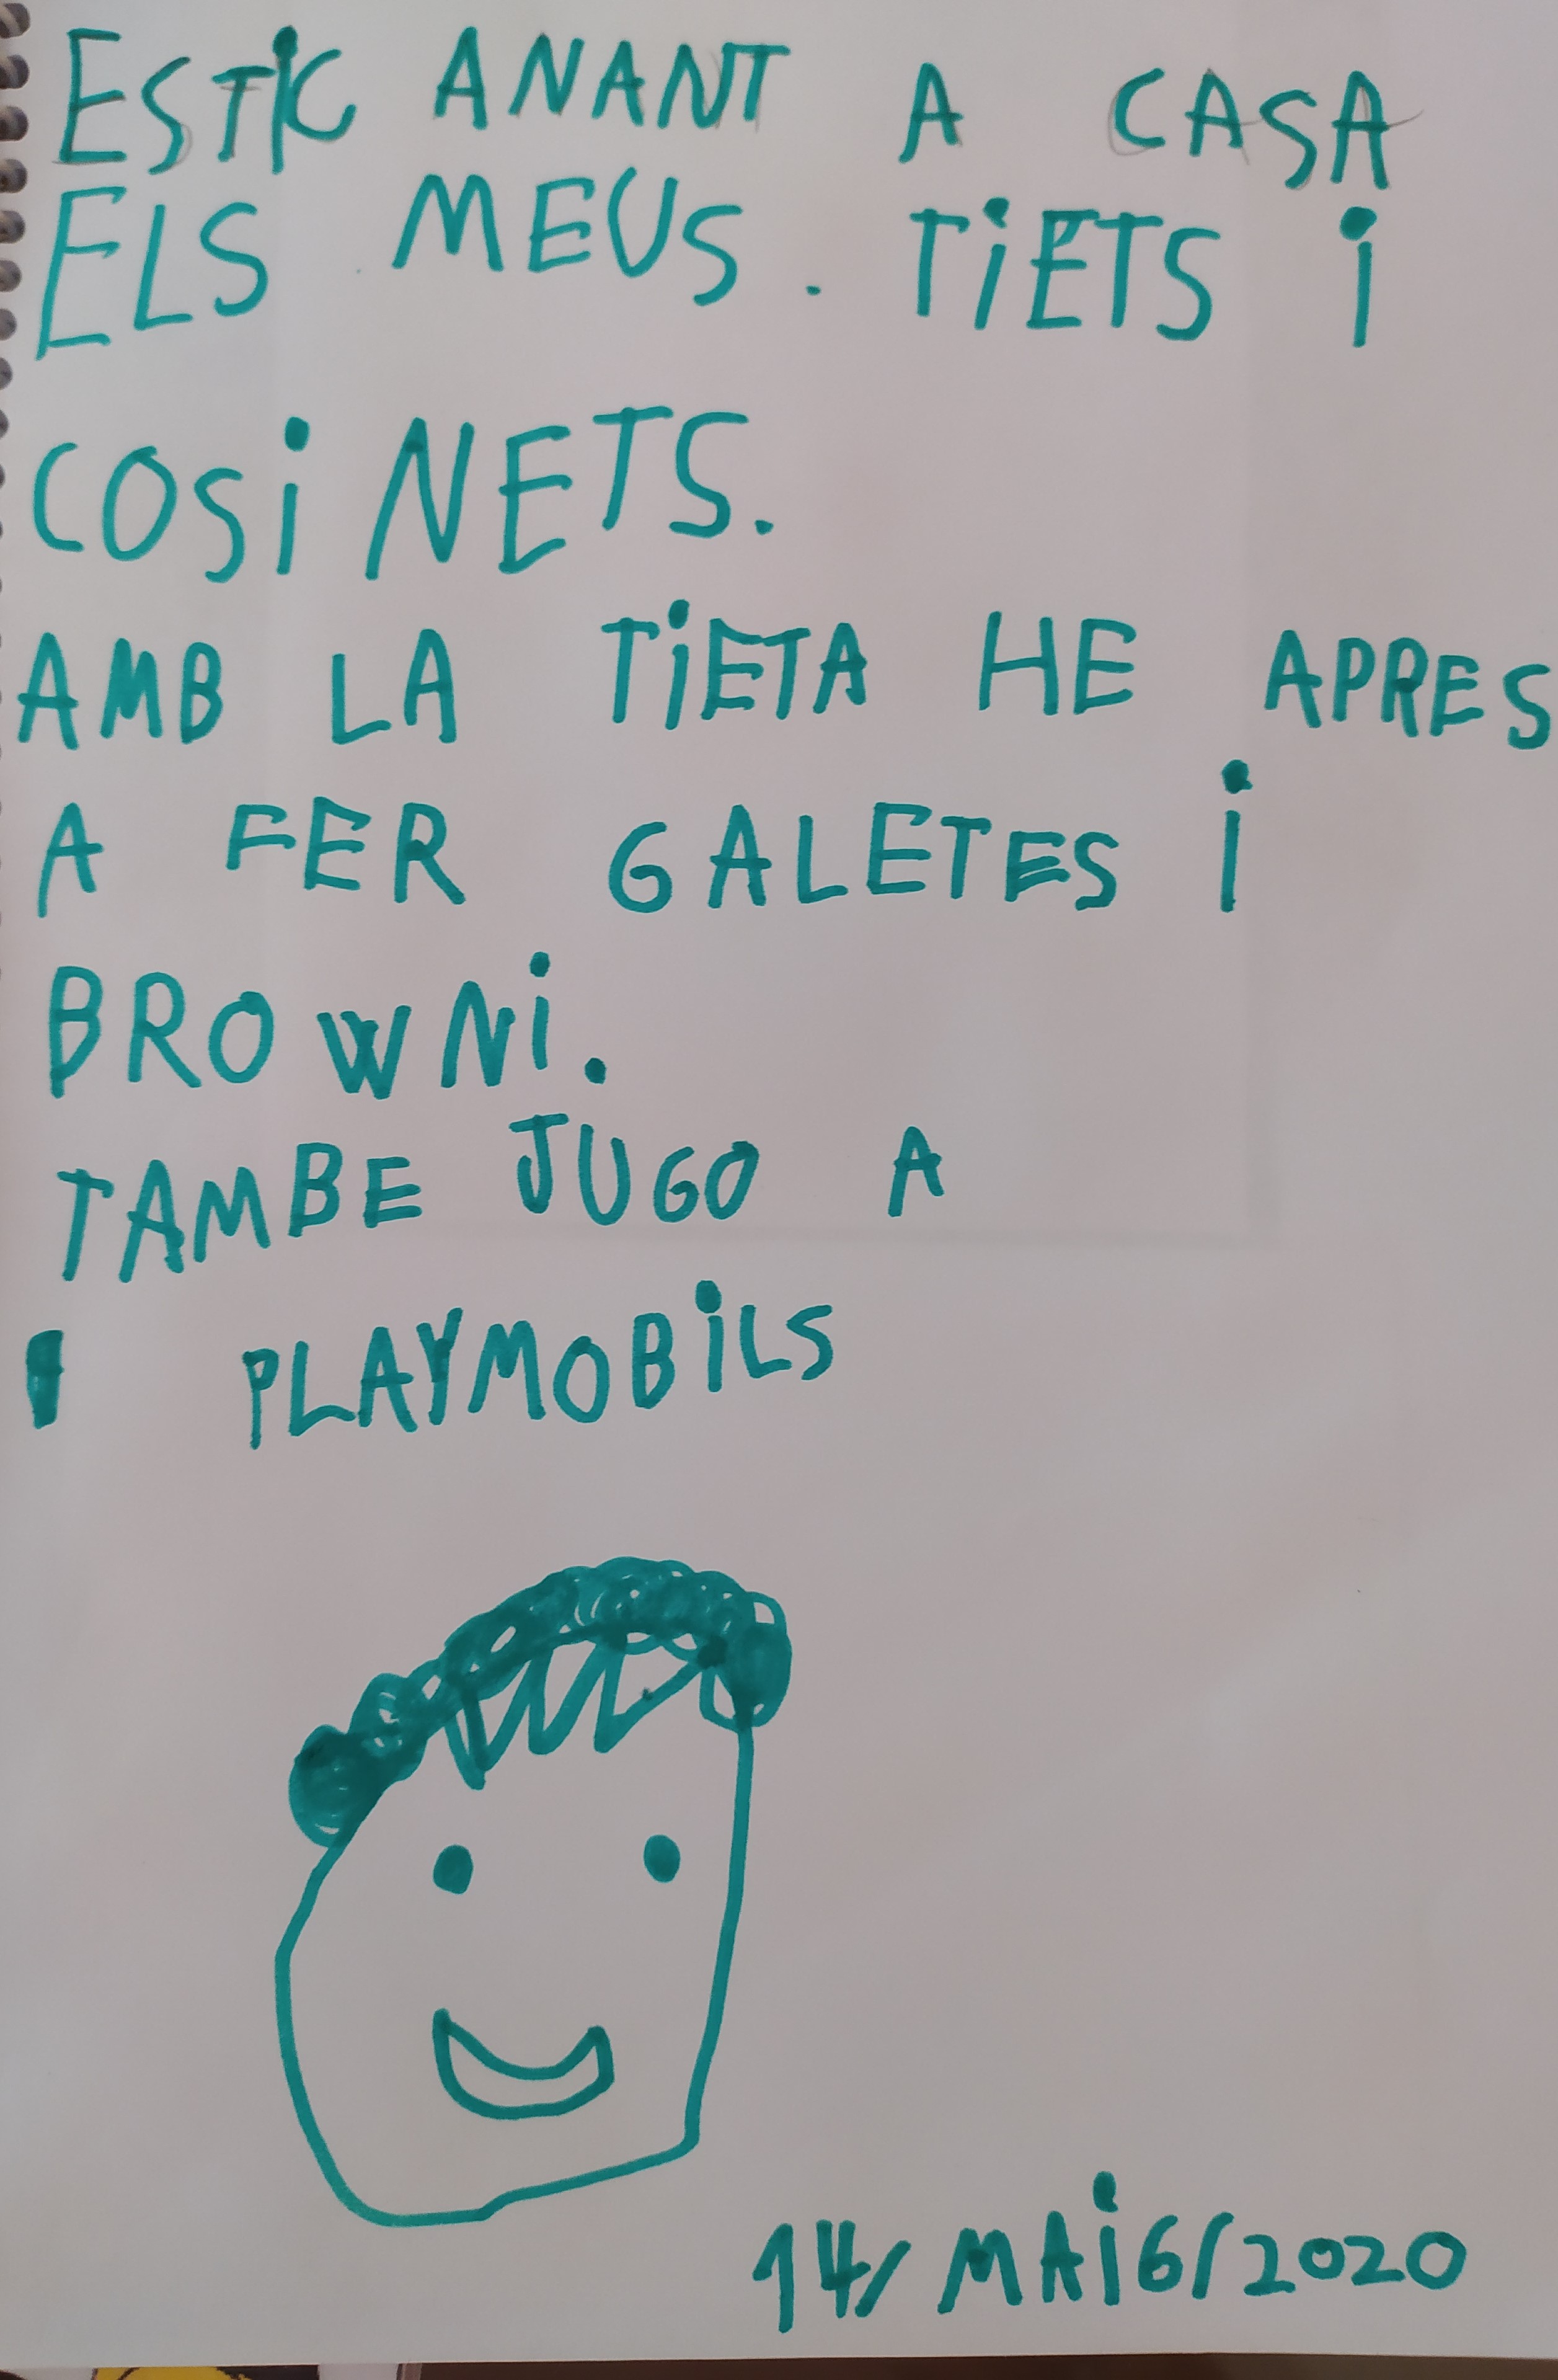 ESTiC ANANT A CASA
ELS MEUS. TiETS i
COSiNETS.
AMB LA TiETA HE APRES
A FER GALETES i
BROWNi.
TAMBE JUGO A
PLAYMOBiLS
14/MAiG/2020